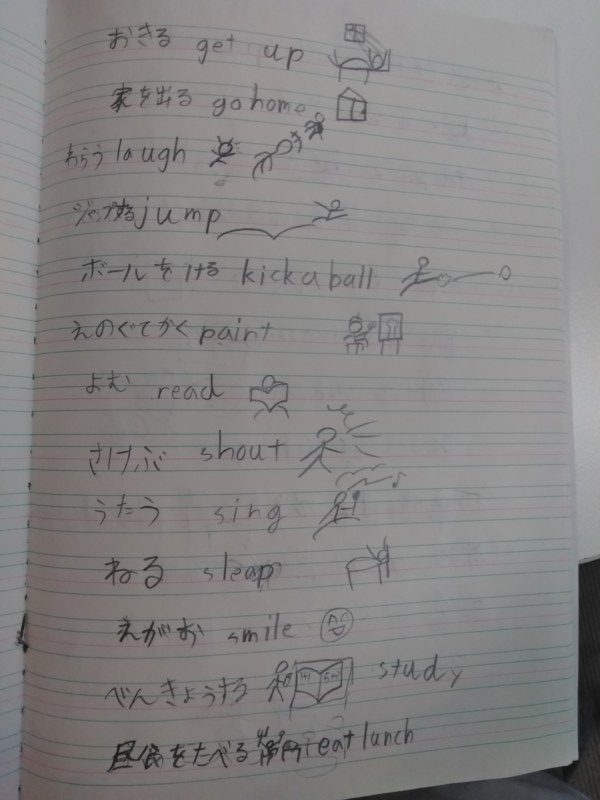 おきる get up
家を出る go home
わらう laugh
ジャンプする jump
ボールをける kick a ball
えのぐでかく paint
よむ read
さけぶ shout
うたう sing
ねる sleap
えがお smile
べんきょうする study
昼食をたべる eat lunch